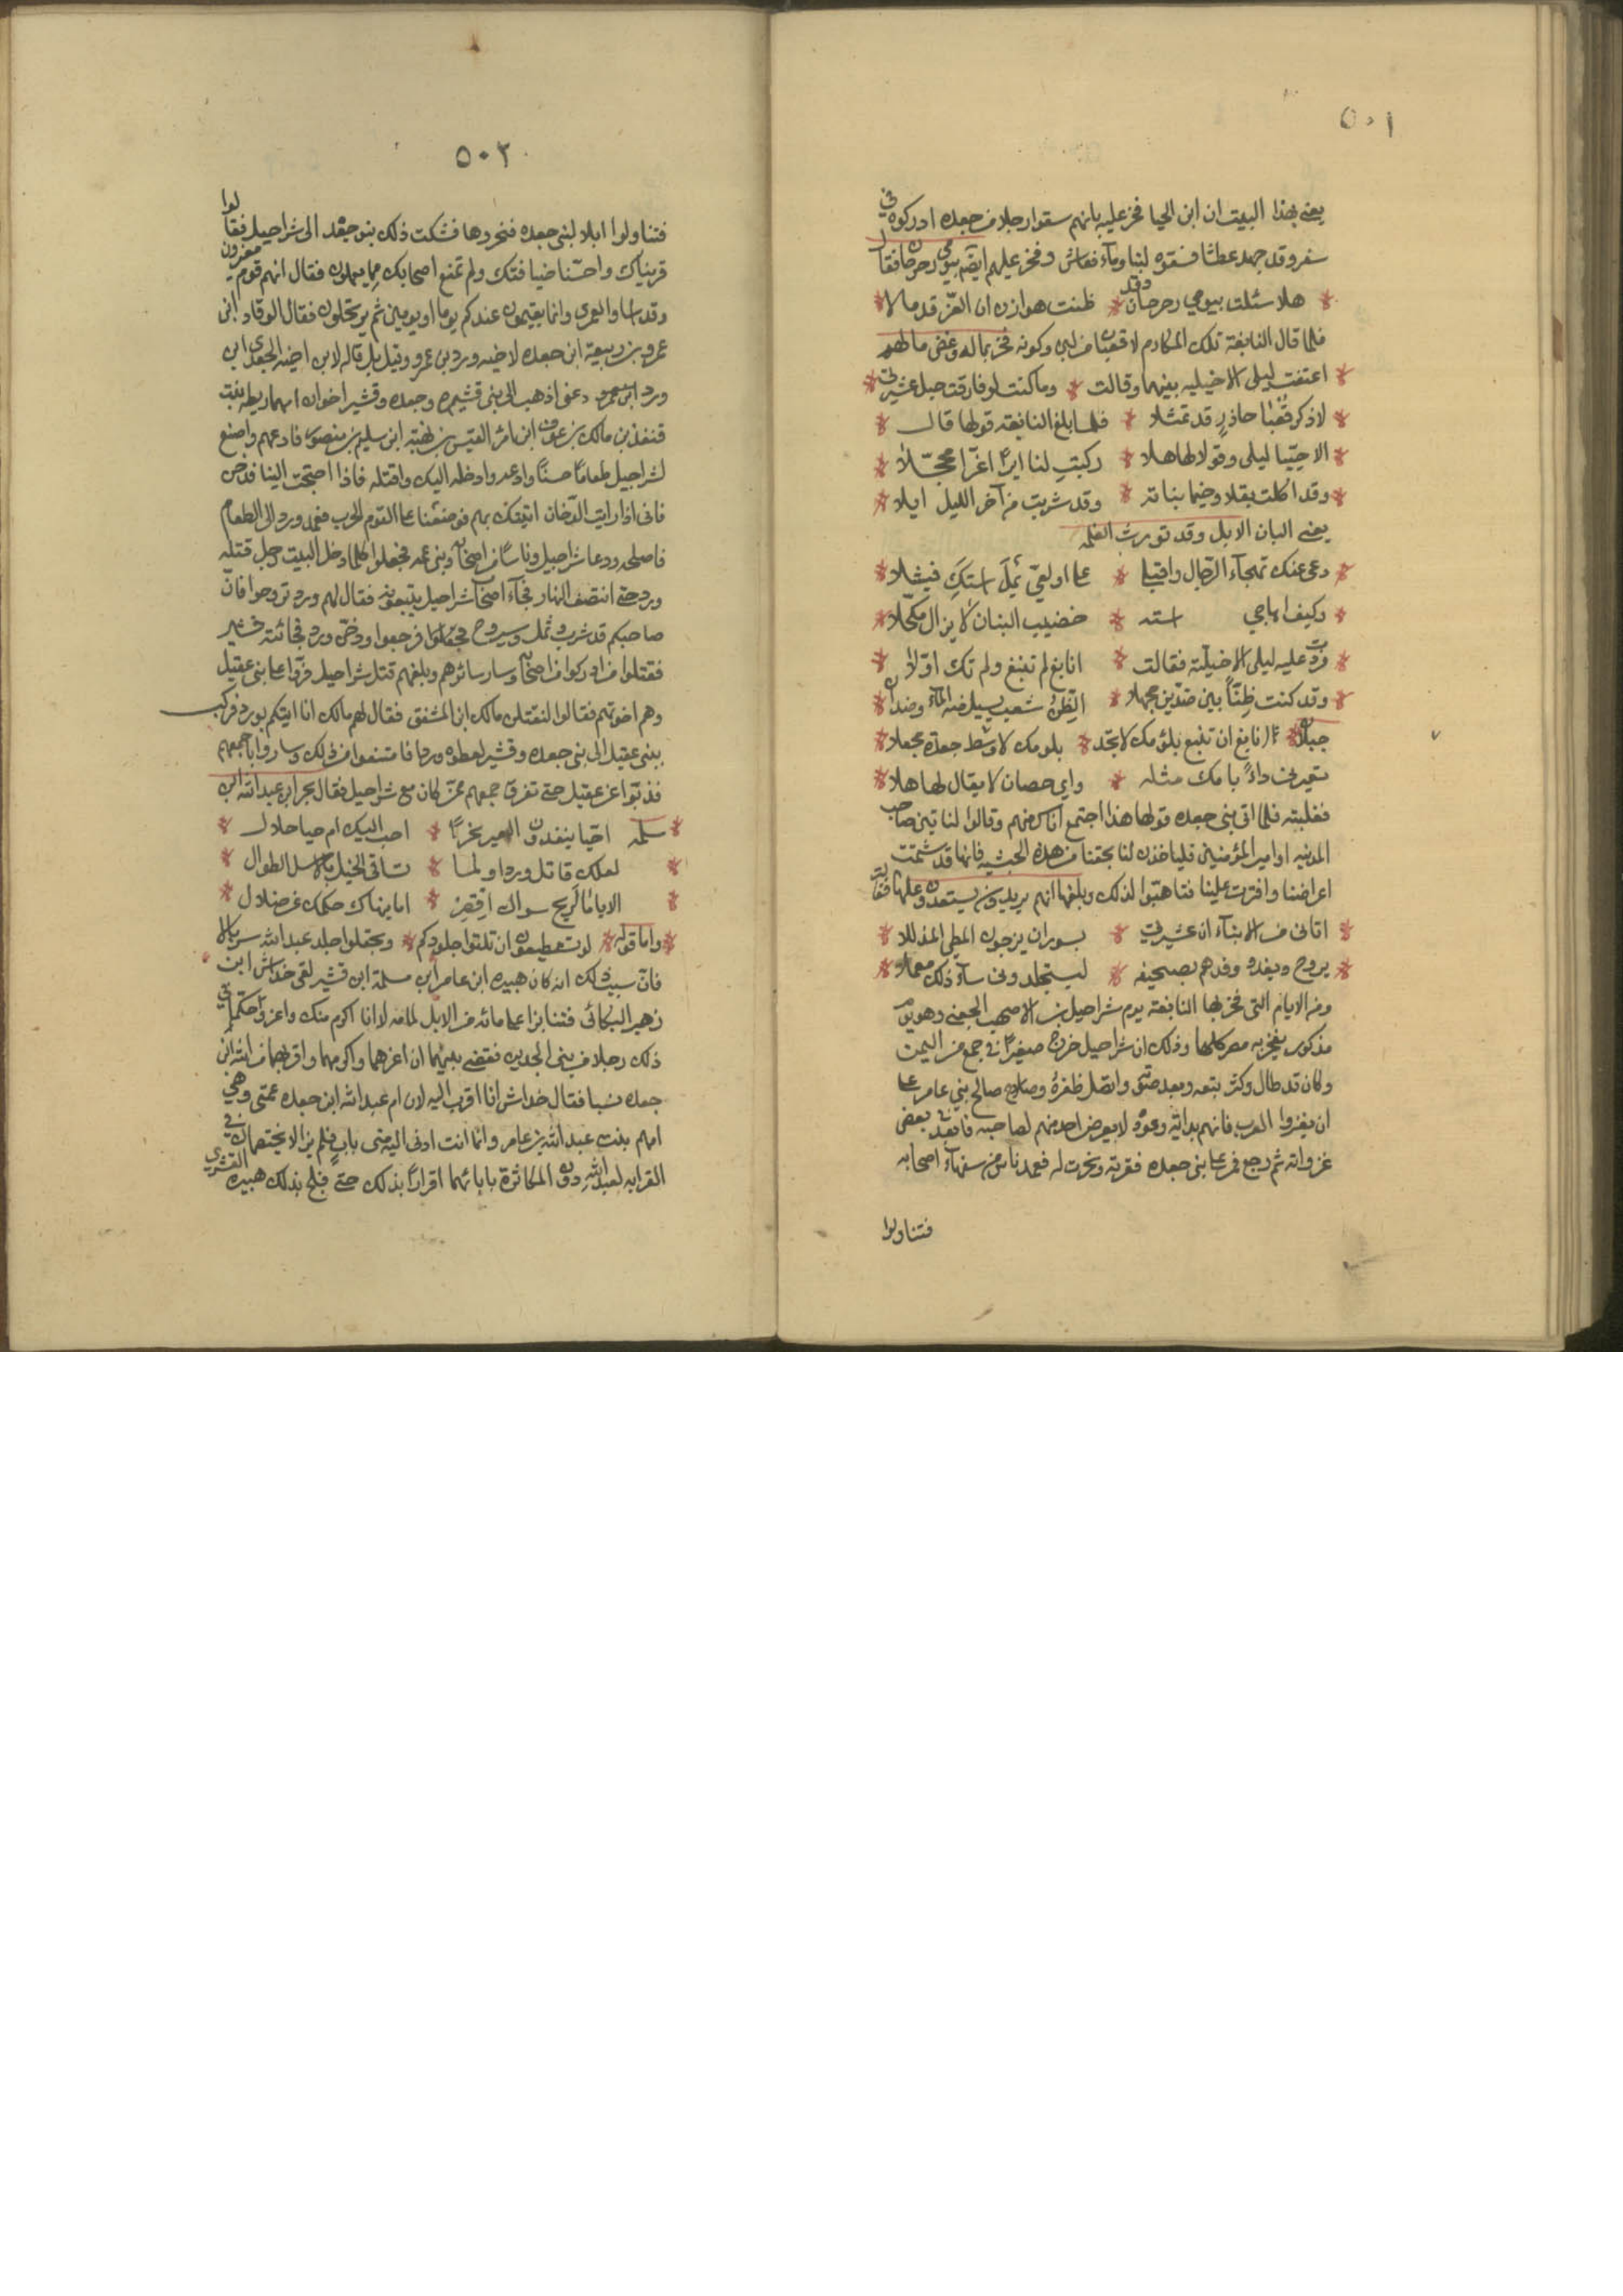 ٥٠١
يعني بهذا البيت ان ابن الحيا فخر عليه بانهم سقوا رجلا من جعده ادركوه في
سفر وقد جهد عطشا فسقوه لبنا وماء فعاش وفخر عليهم ايضا بيومي رحرحان فقال
هلا سئلت بيومي رحرحان وقد * ظنت هوازن ان العز قد مالا
فلما قال النابغة تلك المكارم لا قعبان من لبن وكونه فخر بماله وغض ما لهم
اعتفت ليلى الاخيليه بينهما وقالت * وما كنت لو فارقت جبل عشيرتي
لاذكر قعبا حاذر قد تمثلا * فلما بلغ النابغة قولها قال
الا حييا ليلى وقولا لها هلا * ركبت لنا ايرا اغرا محجلا
وقد اكلت بقلا وخيما بناته * وقد شربت من آخر الليل ايلا
يعني البان الابل وقد تورث الغلمه
دعي عنك تهجاء الرجال واقبلي * على اولغي يملا استك فيشلا
وكيف اهاجي استه * خضيب البنان لا يزال مكحلا
فردت عليه ليلى الاخيلية فقالت * انابغ لم تنبغ ولم تك اولا
وقد كنت ظنا بين ضدين مجهلا * الظن شعب يسيل منه الماء وضدان
جبلان انابغ ان تنبغ بلؤمك لا تجد * بلومك لا وسط جعدة مجعلا
تعيرني داء بامك مثله * واي حصان لا يقال لها هلا
فغلبته فلما اتى بني جعده قولها هذا اجتمع اناس منهم وقالوا لناتين صاحب
المدينه او امير المؤمنين فلياخذن لنا بحقنا من هذه الخبيثه فانها قد شتمت
اعراضنا وافترت علينا فتاهبوا لذلك وبلغها انهم يريدون يستعدون عليها فقالت
اتاني من الانباء ان عشيرتي * بسوران يزجون المطي المذللا
يروح ويغدو وفدهم بصحيفه * ليستجلدوني ساء ذلك معملا
ومن الايام التي فخر بها النابغة يوم شراحيل بن الاصهب الجعفي وهو يوم
مذكور يفخر به مضر كلها وذلك ان شراحيل خرج مغيرا في جمع من اليمن
وكان قد طال وكثر تبعه وبعد صيته واتصل ظفره وصالح صالح بني عامر على
ان يغزوا العرب فانهم بداته وعوده لا يعرض احد منهم لصاحبه فابعد في بعض
غزواته ثم رجع فمر على بني جعده فقربته ونحرت له فعمد ناس من سفهاء اصحابه
فتناولوا
٥٠٢
فتناولوا ابلا لبني جعده فنحروها فشكت ذلك بنو جعده الى شراحيل فقالوا
قريناك واحسنا ضيافتك ولم تمنع اصحابك مما يعملون فقال انهم قوم مغيرون
وقد اساوا لعمري وانما يقيمون عندكم يوما او يومين ثم يرتحلون فقال الوقاد ابن
عمرو بن ربيعة ابن جعده لاخيه ورد بن عمرو وقيل بل قاله لابن اخيه الجعدي ابن
ورد ابن عمرو دعني اذهب الى بني قشير وجعده وقشير اخوان امهما ريطه بنت
قنفذ بن مالك بن عوف ابن امرئ القيس بن بهثة ابن سليم بن منصور فادعهم واصنع
لشراحيل طعاما حسنا وادعه وادخله اليك واقتله فاذا احتجت الينا فدخن
فاني اذا رايت الدخان اتيتك بهم فوضعنا على القوم الحرب فعمد ورد الى الطعام
فاصلحه ودعا شراحيل وناسا من اصحابه وبني عمه فجعلوا كلما دخل البيت رجل قتله
ورد حتى انتصف النهار فجاء اصحاب شراحيل يتبعونه فقال لهم ورد تروحوا فان
صاحبكم قد شرب وثمل وسيروح فرجعوا ودخن ورد فجائته قشير
فقتلوا من ادركوا من اصحابه وسار سائرهم وبلغهم قتل شراحيل فمروا على بني عقيل
وهم اخوتهم فقالوا لنقتلن مالك ابن المنتفق فقال لهم مالك انا اتيكم بورد فركب
ببني عقيل الى بني جعده وقشير ليعطوه وردا فامتنعوا من ذلك وساروا باجمعهم
فذبوا عن عقيل حتى تفرق جمعهم ممن كان مع شراحيل فقال بحر ابن عبد الله ابن
سلمه احيا ينفدون العير نحرا * احب اليك ام حيا حلال
لعلك قاتل وردا ولما * تساقي الخيل بالاسل الطوال
الا يا مالريح سواك اقصر * اما ينهاك حلمك عن ضلال
واما قوله * لو تستطيعون ان تلقوا جلودكم * وتجعلوا جلد عبد الله سربالا
فان سبب ذلك انه كان هبيره ابن عامر ابن سلمة ابن قشير لقى خداش ابن
زهير البكائي فتنافرا على مائه من الابل لانا اكرم منك واعز واحتكما في
ذلك رجلا من بني الجدين فقضي بينهما ان اعزهما واكرمهما واقربهما من عبد الله ابن
جعده نسبا فقال خداش انا اقرب اليه لان ام عبد الله ابن جعده عمتي وهي
امهم بنت عبد الله بن عامر وانما انت ادنى اليه مني باب فلم يزالا يختصمان في
القرابه لعبد الله دون المكاثرة بابائهما اقرارا بذلك حتى فلج بذلك هبيره القشيري